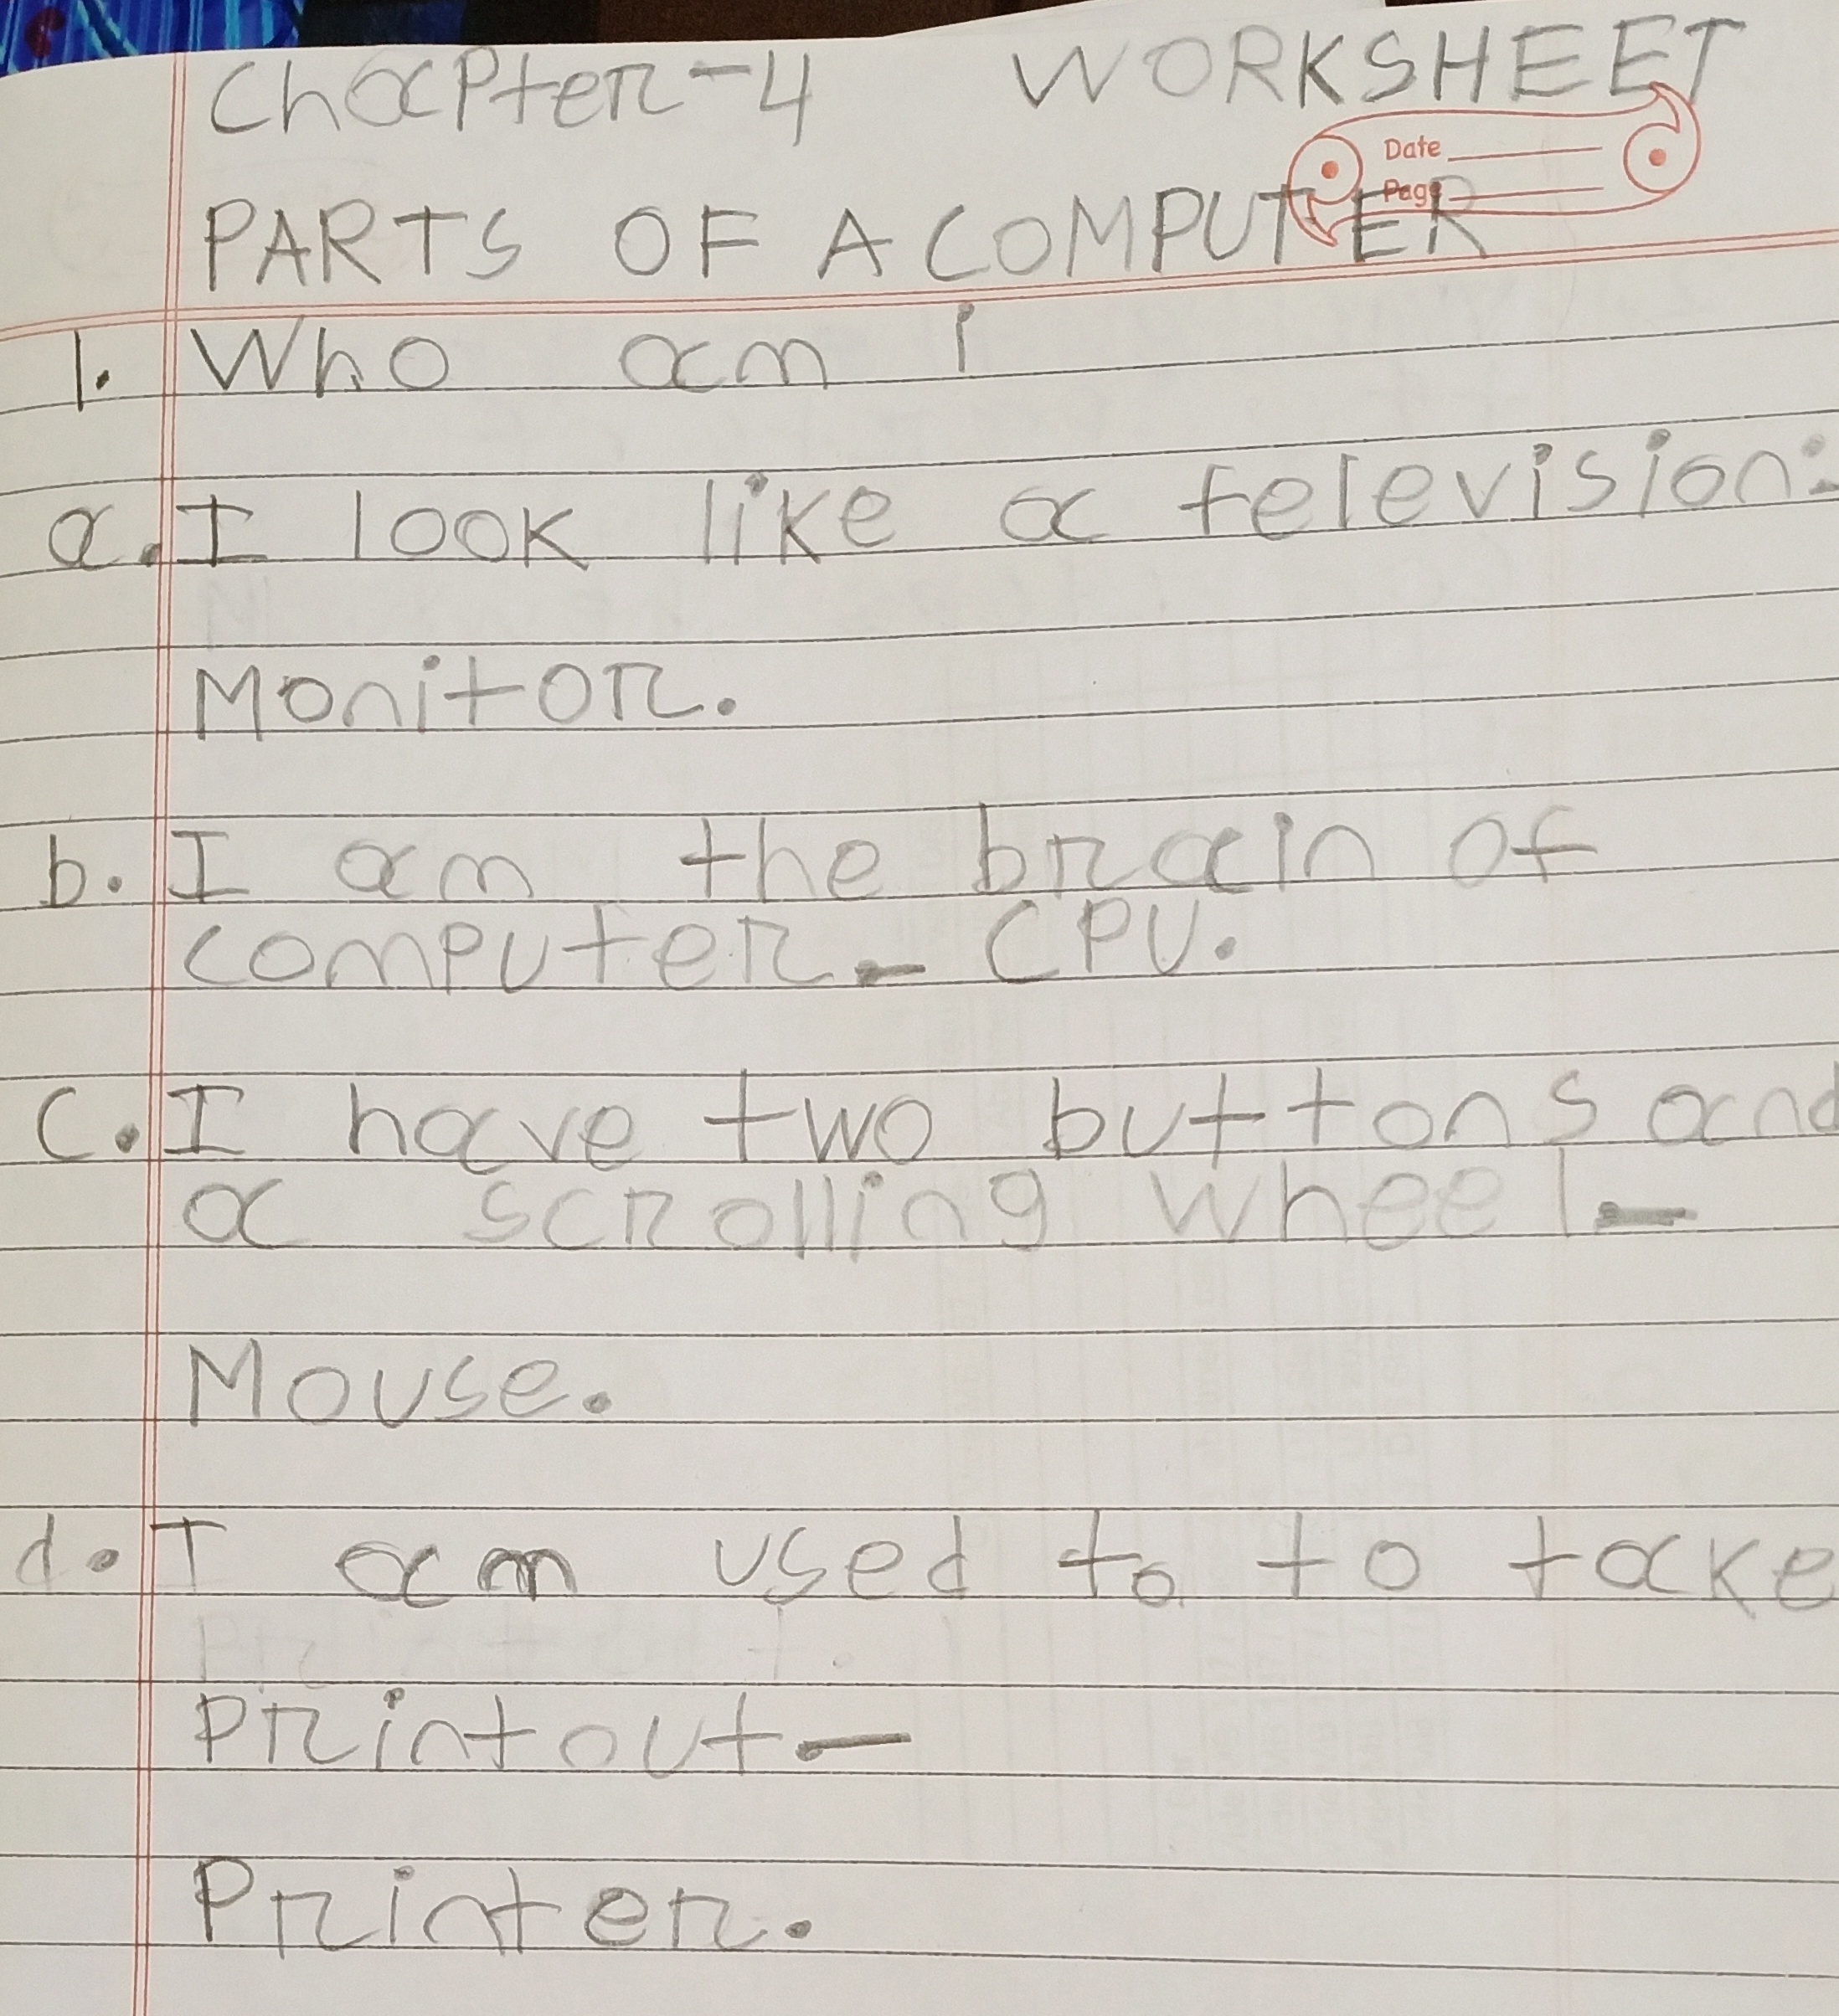 Chapter-4 WORKSHEET
Date
Page
PARTS OF A COMPUTER
1. Who am i
a. I look like a television:-
Monitor.
b. I am the brain of
computer - CPU.
c. I have two buttons and
a scrolling wheel -
Mouse.
d. I am used to to take
Printout -
Printer.